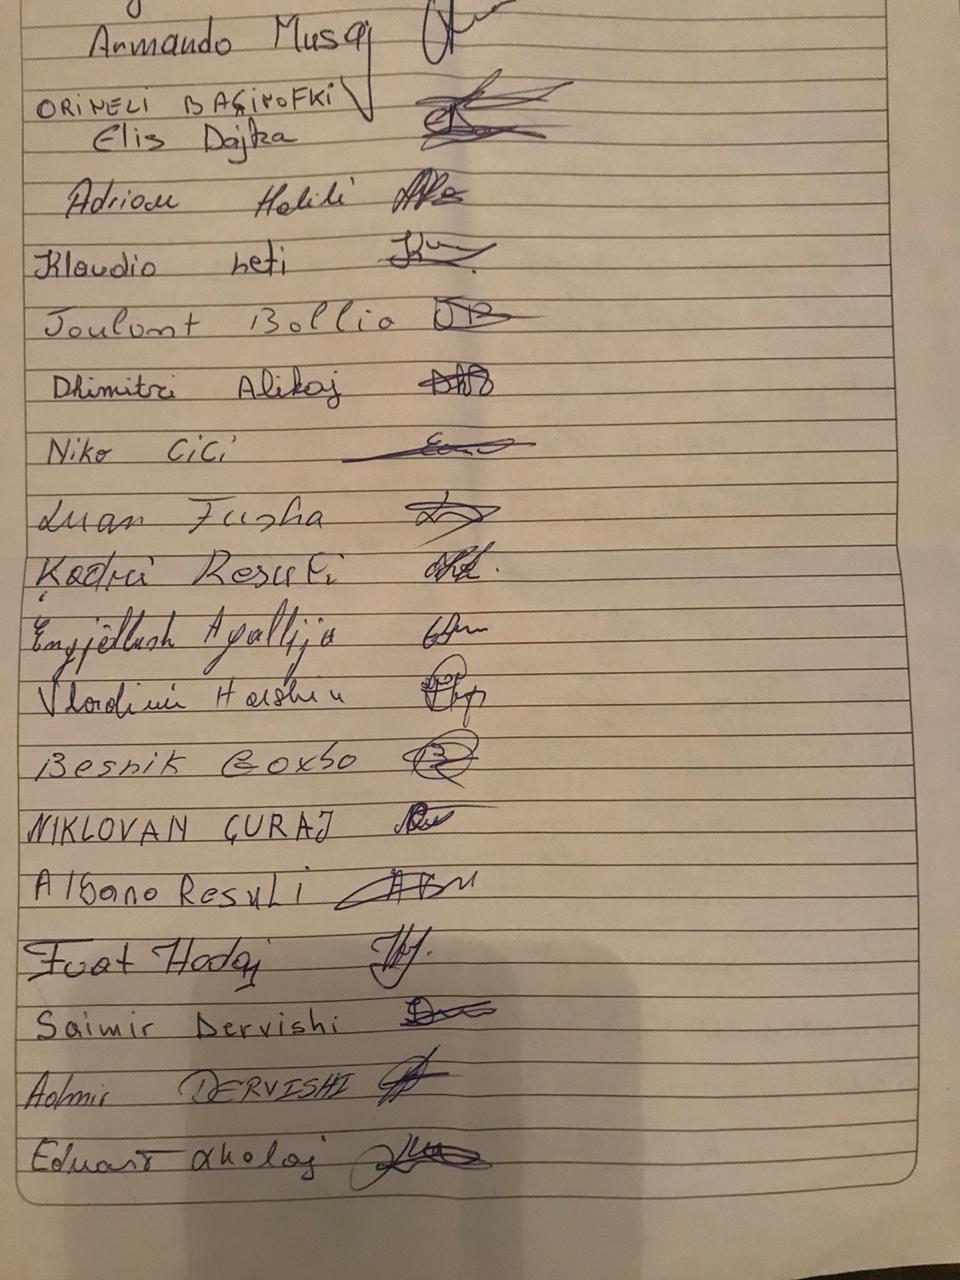 Armando Musaj
ORINELI BAÇINOFKI
Elis Dojka
Adrian Halili
Klaudio Leti
Joulont Bollio
Dhimitri Alikaj
Niko CiCi
Luan Fusha
Kadri Resuli
Engjëllush
Vladimir
Besnik Goxho
NIKLOVAN ÇURAJ
Albano Resuli
Fuat Hodaj
Saimir Dervishi
Admir DERVISHI
Eduart